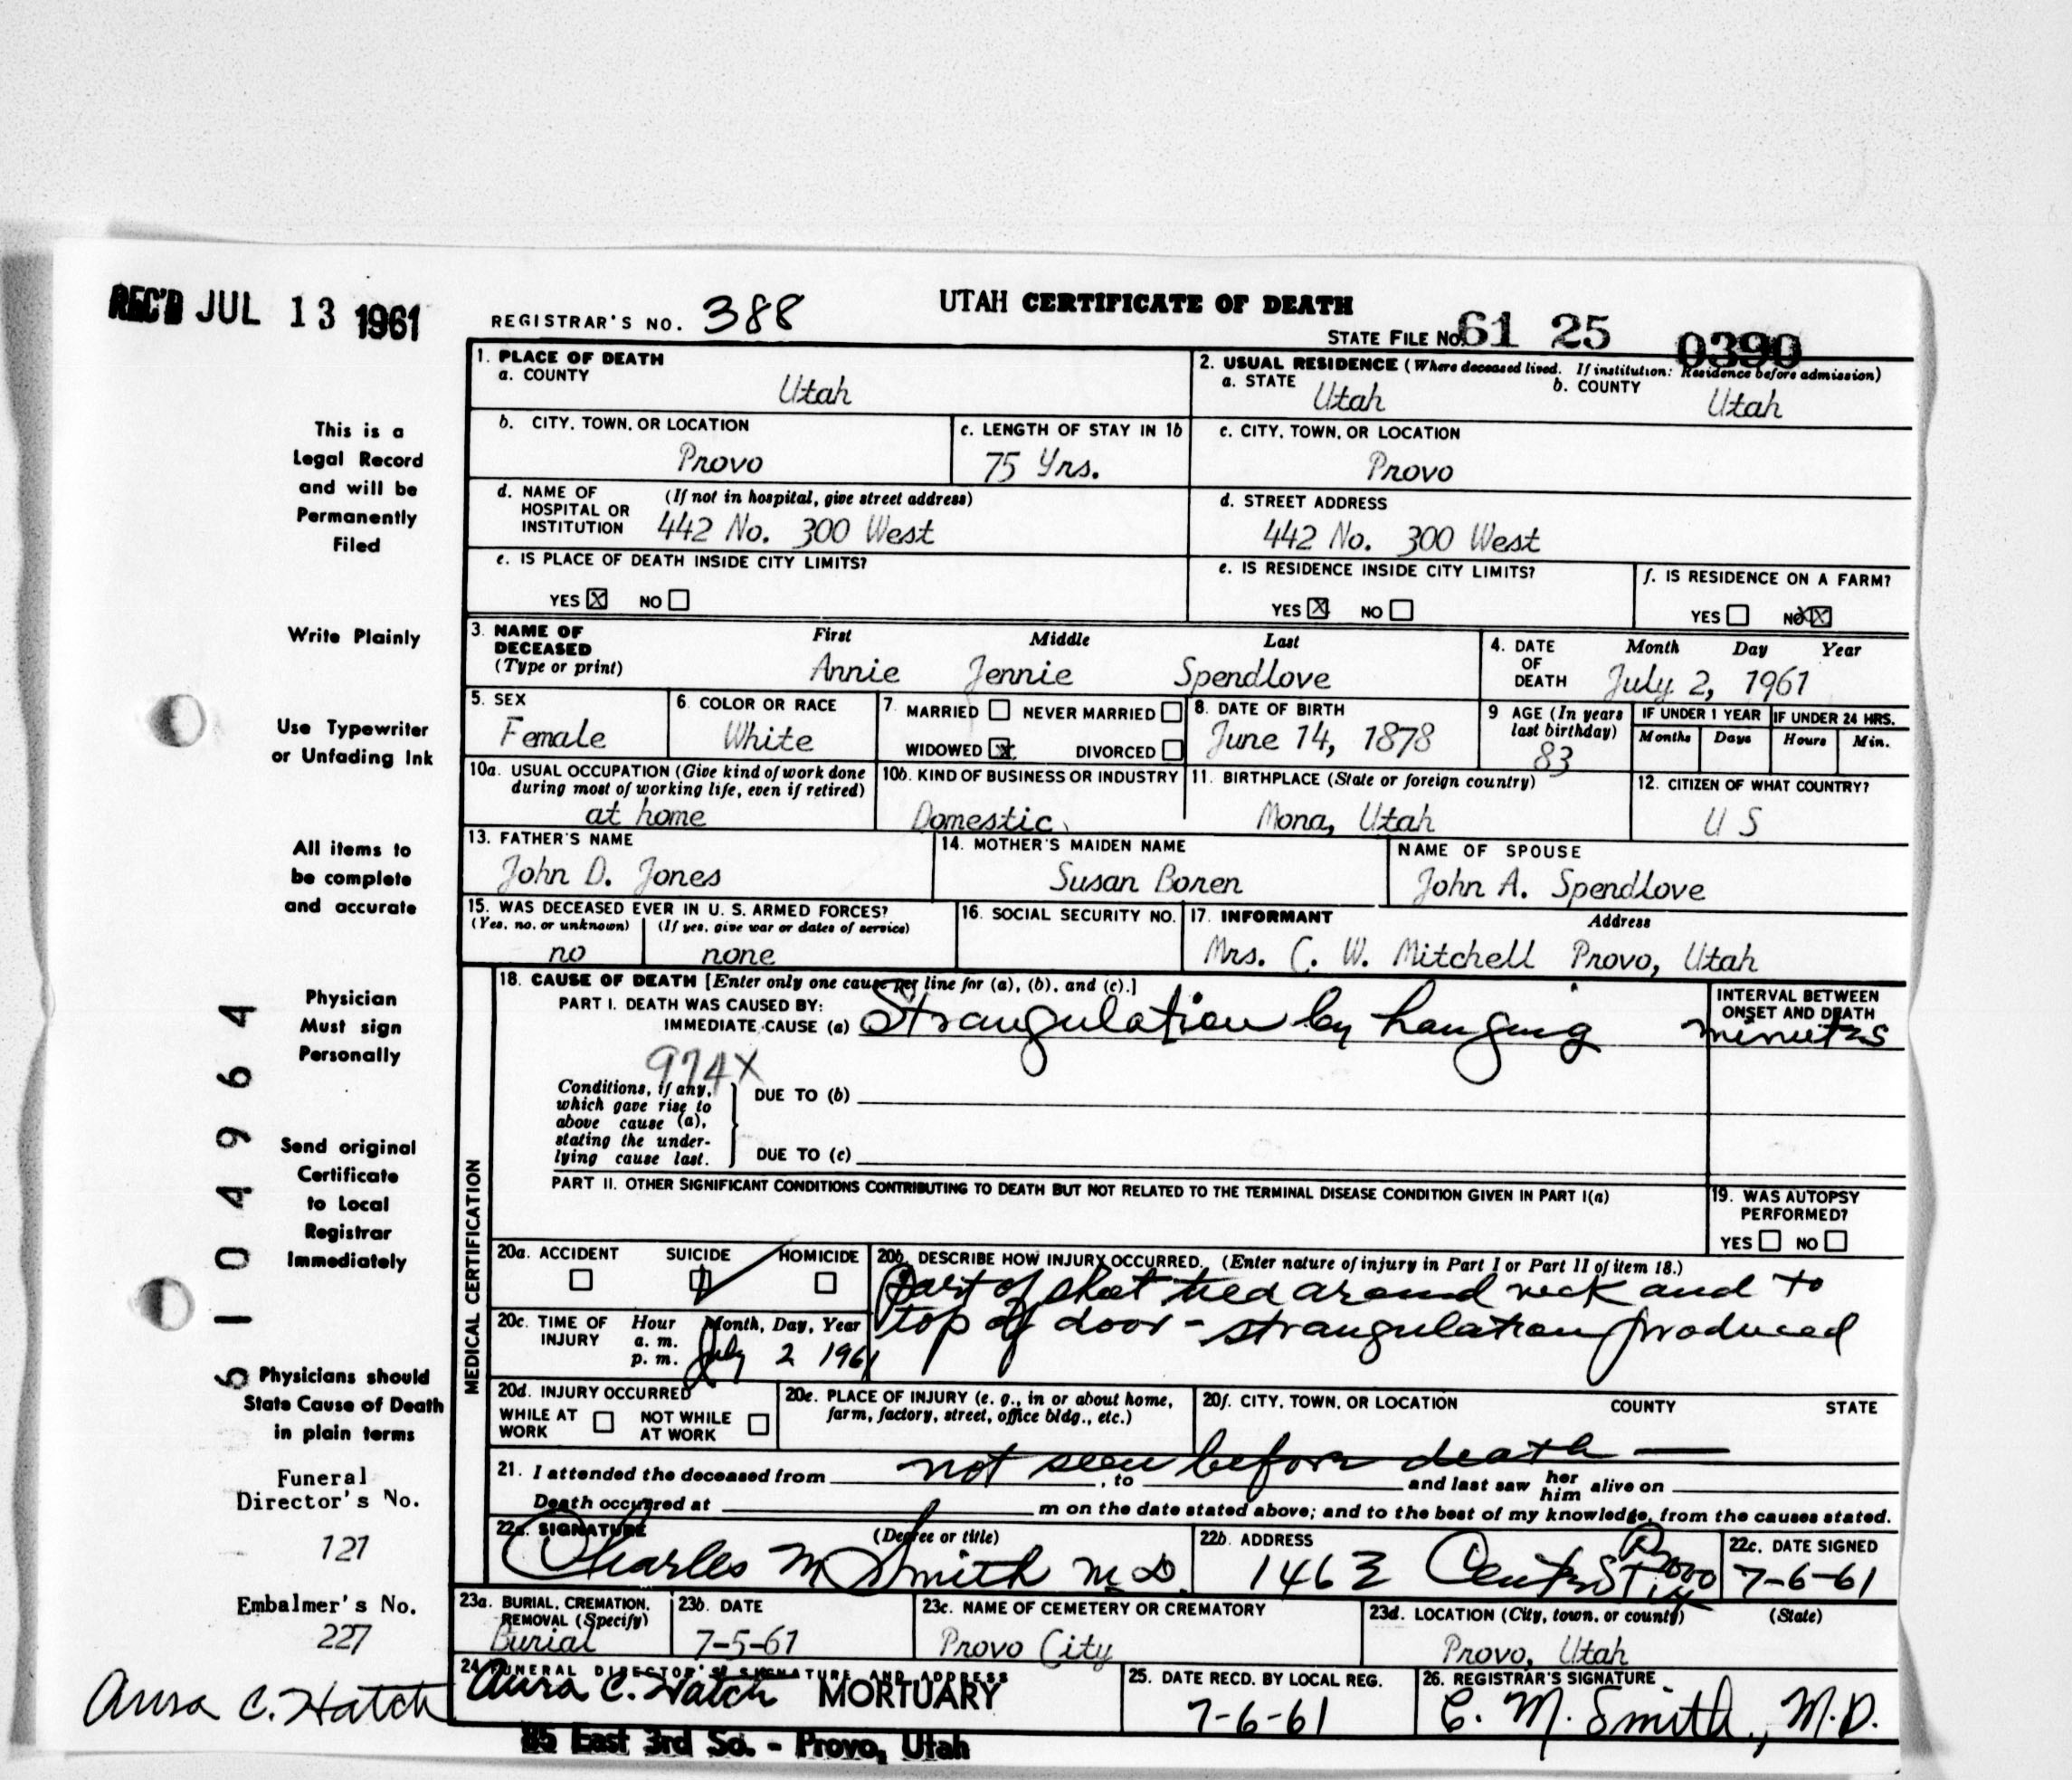 REC'D JUL 13 1961
REGISTRAR'S NO. 388
UTAH CERTIFICATE OF DEATH
STATE FILE NO. 61 25 0390
1. PLACE OF DEATH
a. COUNTY
Utah
2. USUAL RESIDENCE (Where deceased lived. If institution: Residence before admission)
a. STATE
Utah
b. COUNTY
Utah
b. CITY, TOWN, OR LOCATION
Provo
c. LENGTH OF STAY IN 1b
75 Yrs.
c. CITY, TOWN, OR LOCATION
Provo
d. NAME OF HOSPITAL OR INSTITUTION
(If not in hospital, give street address)
442 No. 300 West
d. STREET ADDRESS
442 No. 300 West
e. IS PLACE OF DEATH INSIDE CITY LIMITS?
YES X NO
e. IS RESIDENCE INSIDE CITY LIMITS?
YES X NO
f. IS RESIDENCE ON A FARM?
YES NO X
3. NAME OF DECEASED
(Type or print)
First Middle Last
Annie Jennie Spendlove
4. DATE OF DEATH
Month Day Year
July 2, 1961
5. SEX
Female
6. COLOR OR RACE
White
7. MARRIED NEVER MARRIED
WIDOWED X DIVORCED
8. DATE OF BIRTH
June 14, 1878
9 AGE (In years last birthday)
83
IF UNDER 1 YEAR
Months Days
IF UNDER 24 HRS.
Hours Min.
10a. USUAL OCCUPATION (Give kind of work done during most of working life, even if retired)
at home
10b. KIND OF BUSINESS OR INDUSTRY
Domestic
11. BIRTHPLACE (State or foreign country)
Mona, Utah
12. CITIZEN OF WHAT COUNTRY?
U S
13. FATHER'S NAME
John D. Jones
14. MOTHER'S MAIDEN NAME
Susan Boren
NAME OF SPOUSE
John A. Spendlove
15. WAS DECEASED EVER IN U. S. ARMED FORCES?
(Yes, no, or unknown) (If yes, give war or dates of service)
no none
16. SOCIAL SECURITY NO.
17. INFORMANT Address
Mrs. C. W. Mitchell Provo, Utah
MEDICAL CERTIFICATION
18. CAUSE OF DEATH [Enter only one cause per line for (a), (b), and (c).]
PART I. DEATH WAS CAUSED BY:
IMMEDIATE CAUSE (a) Strangulation by hanging
INTERVAL BETWEEN ONSET AND DEATH
minutes
974X
Conditions, if any,
which gave rise to
above cause (a),
stating the under-
lying cause last.
DUE TO (b)
DUE TO (c)
PART II. OTHER SIGNIFICANT CONDITIONS CONTRIBUTING TO DEATH BUT NOT RELATED TO THE TERMINAL DISEASE CONDITION GIVEN IN PART I(a)
19. WAS AUTOPSY PERFORMED?
YES NO
20a. ACCIDENT SUICIDE HOMICIDE
20b. DESCRIBE HOW INJURY OCCURRED. (Enter nature of injury in Part I or Part II of item 18.)
Part of sheet tied around neck and to
top of door - strangulation produced
20c. TIME OF INJURY
Hour Month, Day, Year
a. m.
p. m.
July 2 1961
20d. INJURY OCCURRED
WHILE AT WORK
NOT WHILE AT WORK
20e. PLACE OF INJURY (e. g., in or about home, farm, factory, street, office bldg., etc.)
20f. CITY, TOWN, OR LOCATION COUNTY STATE
not seen before death —
21. I attended the deceased from , to and last saw her him alive on
Death occurred at m on the date stated above; and to the best of my knowledge, from the causes stated.
22a. SIGNATURE (Degree or title)
Charles M Smith M. D.
22b. ADDRESS
1463 Provo
22c. DATE SIGNED
7-6-61
23a. BURIAL, CREMATION, REMOVAL (Specify)
Burial
23b. DATE
7-5-61
23c. NAME OF CEMETERY OR CREMATORY
Provo City
23d. LOCATION (City, town, or county) (State)
Provo, Utah
24 FUNERAL DIRECTOR'S SIGNATURE AND ADDRESS
Aura C. Hatch MORTUARY
85 East 3rd So. - Provo, Utah
25. DATE RECD. BY LOCAL REG.
7-6-61
26. REGISTRAR'S SIGNATURE
C. M. Smith, M.D.
This is a
Legal Record
and will be
Permanently
Filed
Write Plainly
Use Typewriter
or Unfading Ink
All items to
be complete
and accurate
Physician
Must sign
Personally
Send original
Certificate
to Local
Registrar
Immediately
Physicians should
State Cause of Death
in plain terms
61104964
Funeral
Director's No.
121
Embalmer's No.
227
Aura C. Hatch